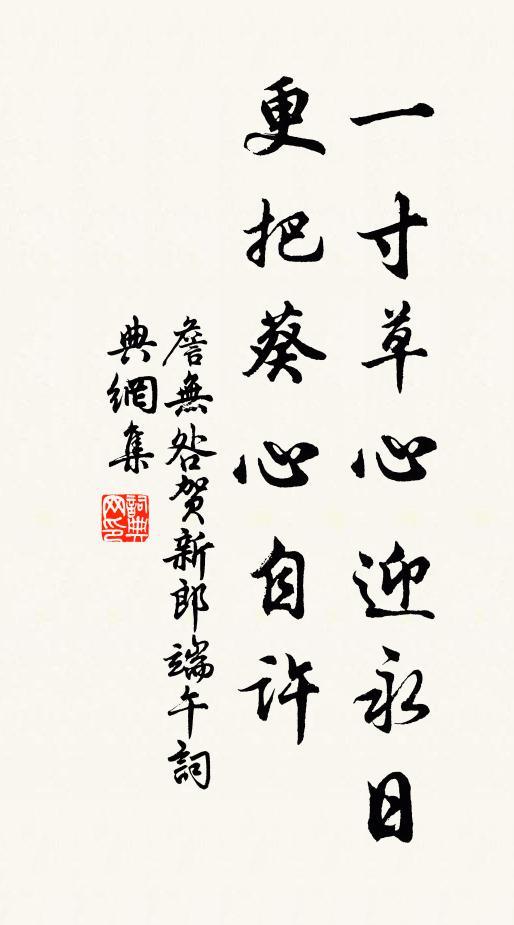 一寸草心迎永日
更把葵心自許
詹無咎賀新郎端午詞
典網集
詞典网印